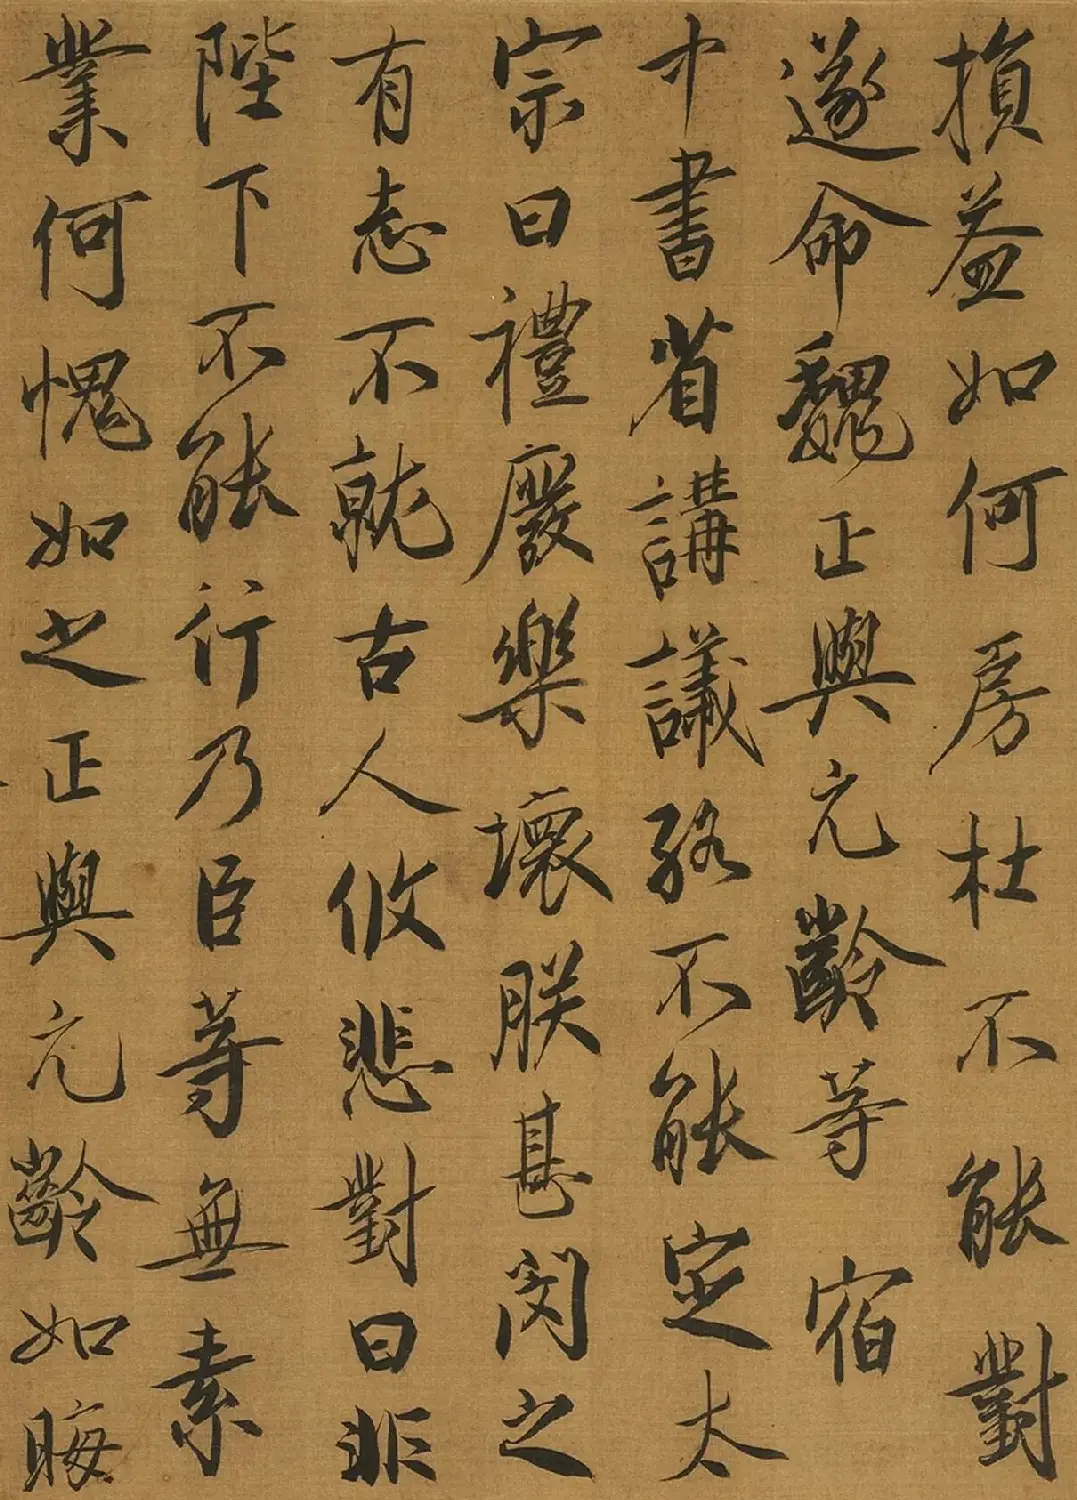 損益如何房杜不能對
遂命魏正與元齡等宿
中書省講議終不能定太
宗曰禮廢樂壞朕甚閔之
有志不就古人攸悲對曰非
陛下不能行乃臣等無素
業何愧如之正與元齡如晦